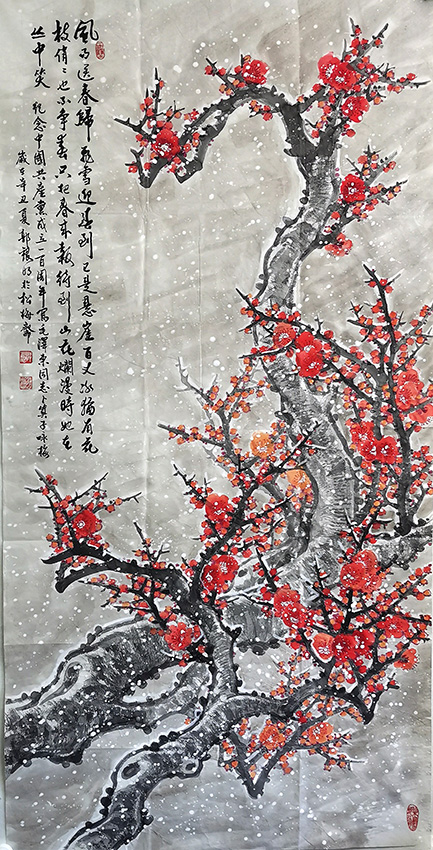 風雨送春歸飛雪迎春到已是懸崖百丈冰猶有花
枝俏〻也不争春只把春来報待到山花爛漫時她在
丛中笑 紀念中國共産黨成立一百周年寫毛澤東同志卜算子咏梅
歲在辛丑夏郭於松梅齋